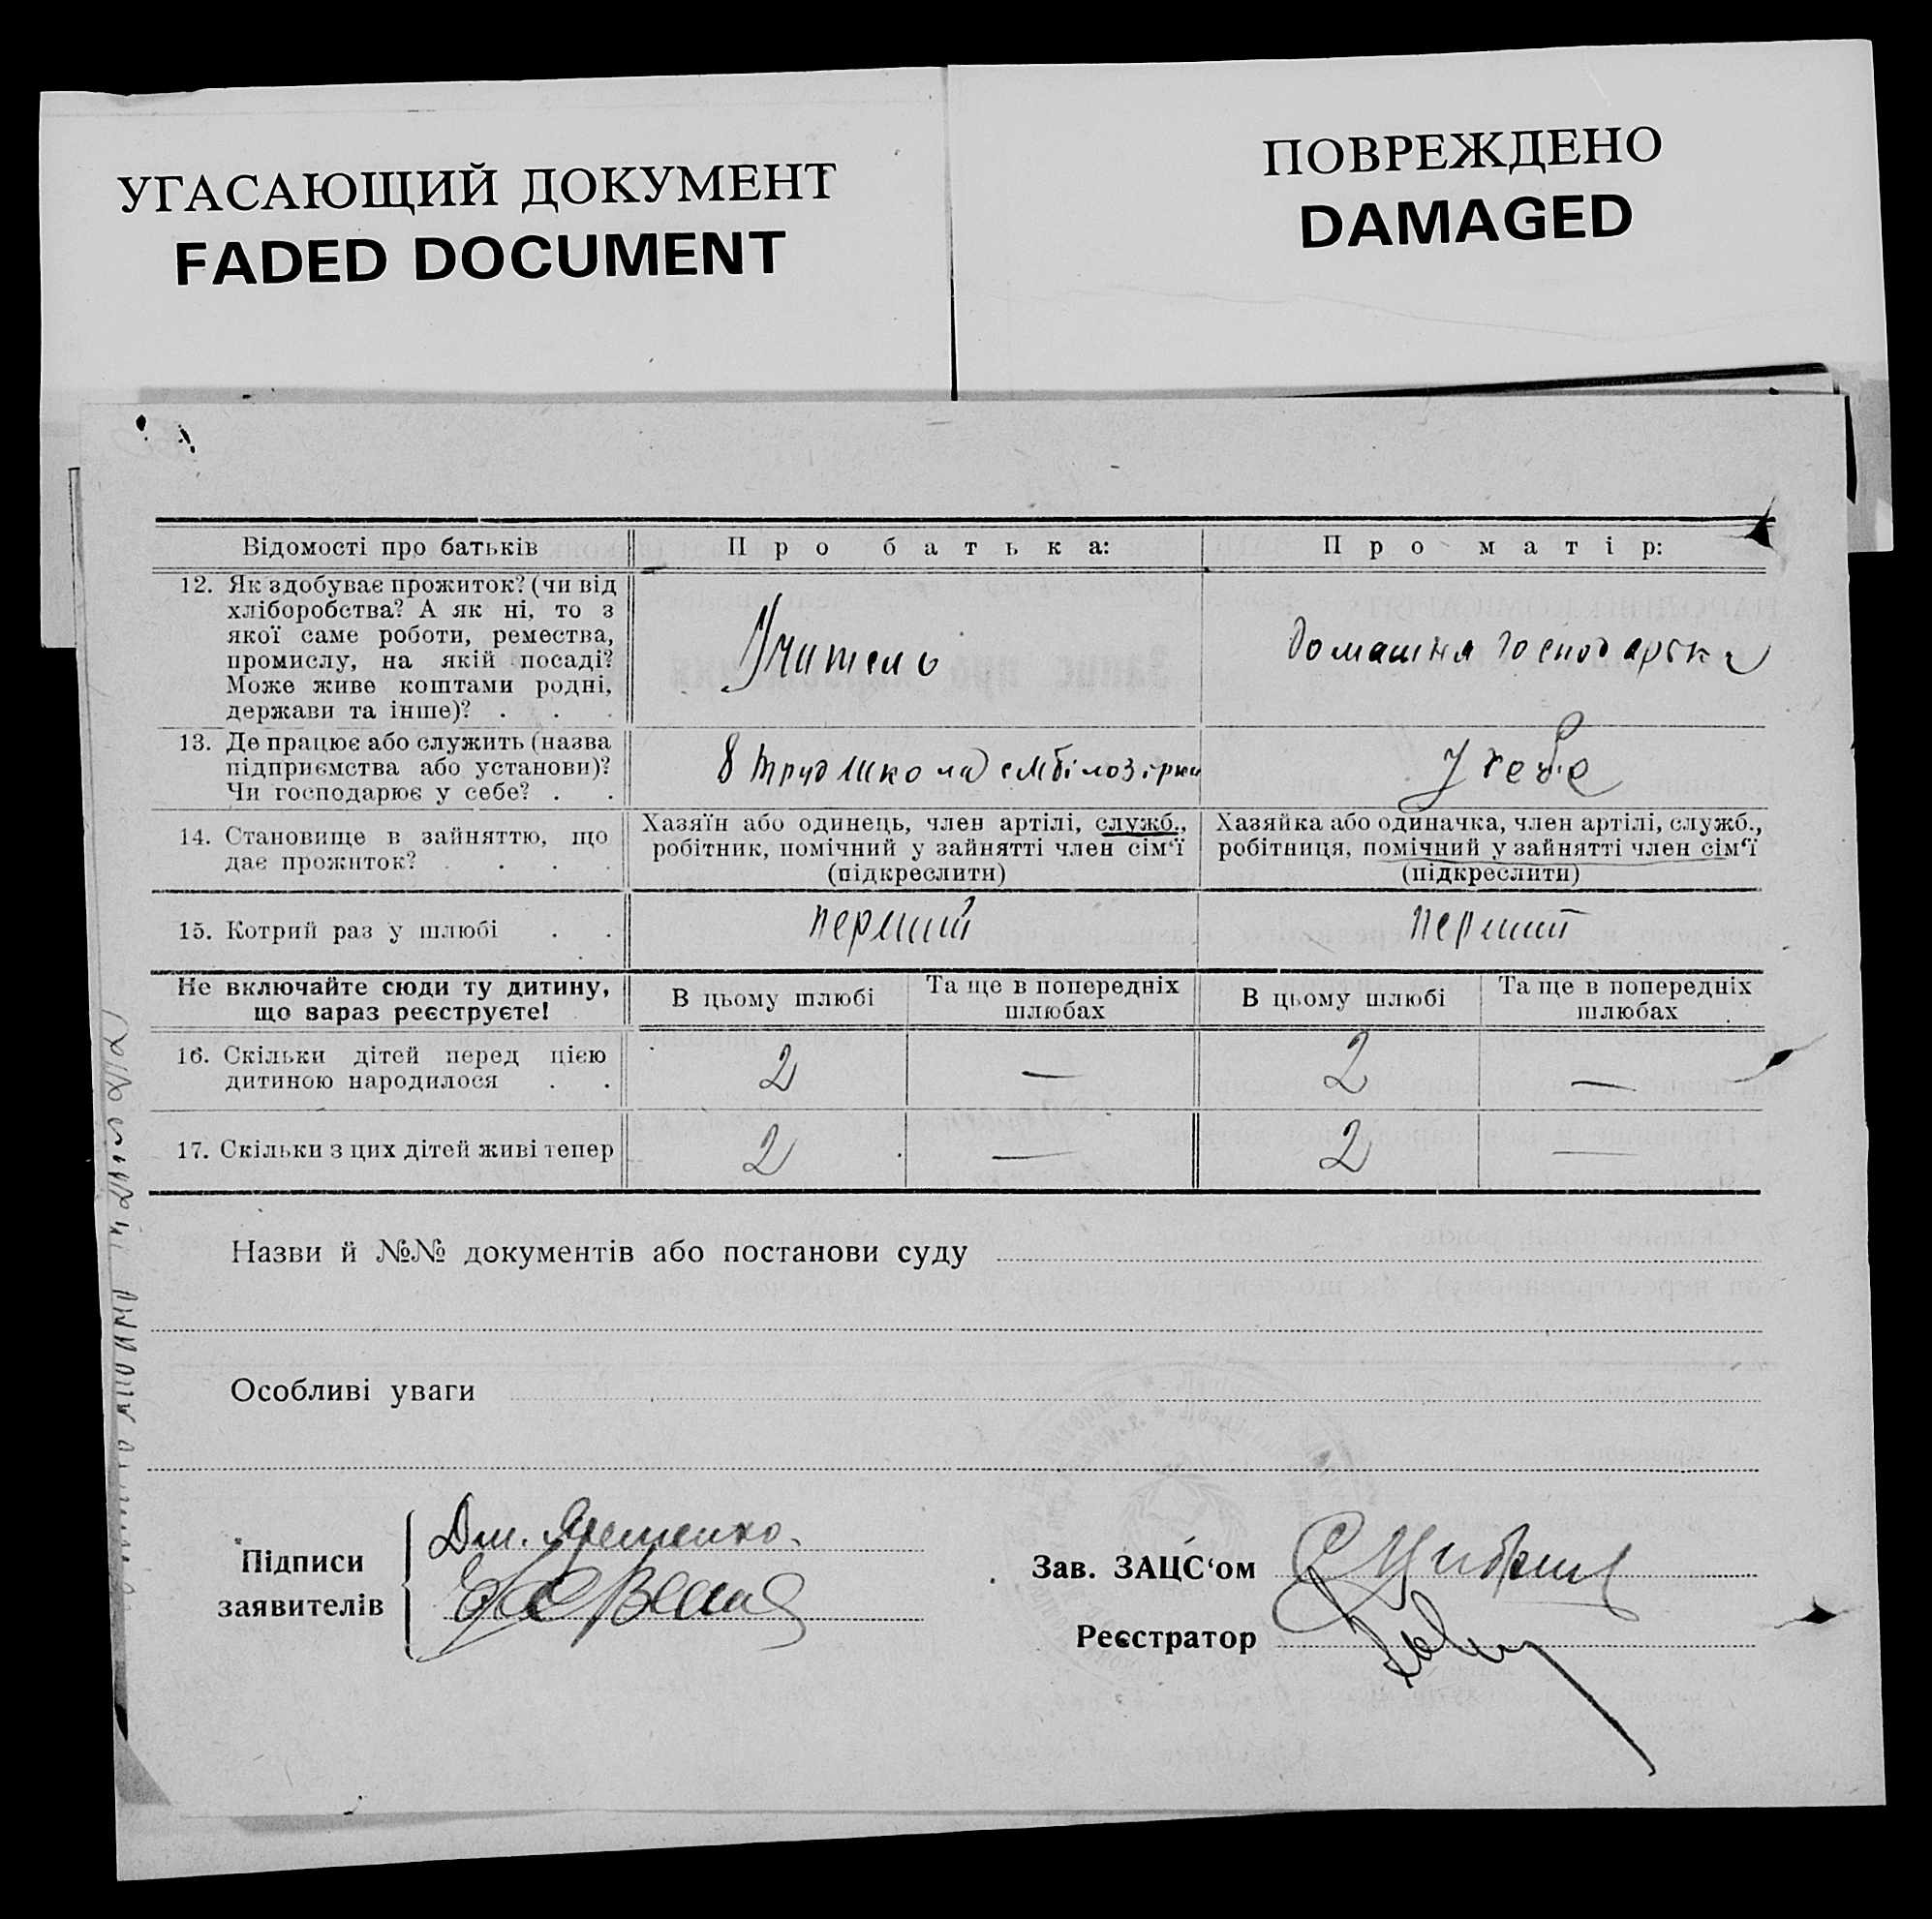 УГАСАЮЩИЙ ДОКУМЕНТ
FADED DOCUMENT
ПОВРЕЖДЕНО
DAMAGED
Відомості про батьків
Про батька:
Про матір:
12. Як здобуває прожиток? (чи від
хліборобства? А як ні, то з
якої саме роботи, ремества,
промислу, на якій посаді?
Може живе коштами родні,
держави та інше)? . . .
Учитель
домашня господарка
13. Де працює або служить (назва
підприємства або установи)?
Чи господарює у себе? . .
в труд школа см білозірки
у себе
14. Становище в зайняттю, що
дає прожиток? . . . .
Хазяїн або одинець, член артілі, служб.,
робітник, помічний у зайнятті член сім‘ї
(підкреслити)
Хазяйка або одиначка, член артілі, служб.,
робітниця, помічний у зайнятті член сім‘ї
(підкреслити)
15. Котрий раз у шлюбі . .
перший
перший
Не включайте сюди ту дитину,
що зараз реєструєте!
В цьому шлюбі
Та ще в попередніх
шлюбах
В цьому шлюбі
Та ще в попередніх
шлюбах
16. Скільки дітей перед цією
дитиною народилося . .
2
—
2
—
17. Скільки з цих дітей живі тепер
2
—
2
—
Назви й №№ документів або постанови суду
Особливі уваги
Підписи
заявителів
Дм. Яременко.
Зав. ЗАЦС‘ом
Реєстратор